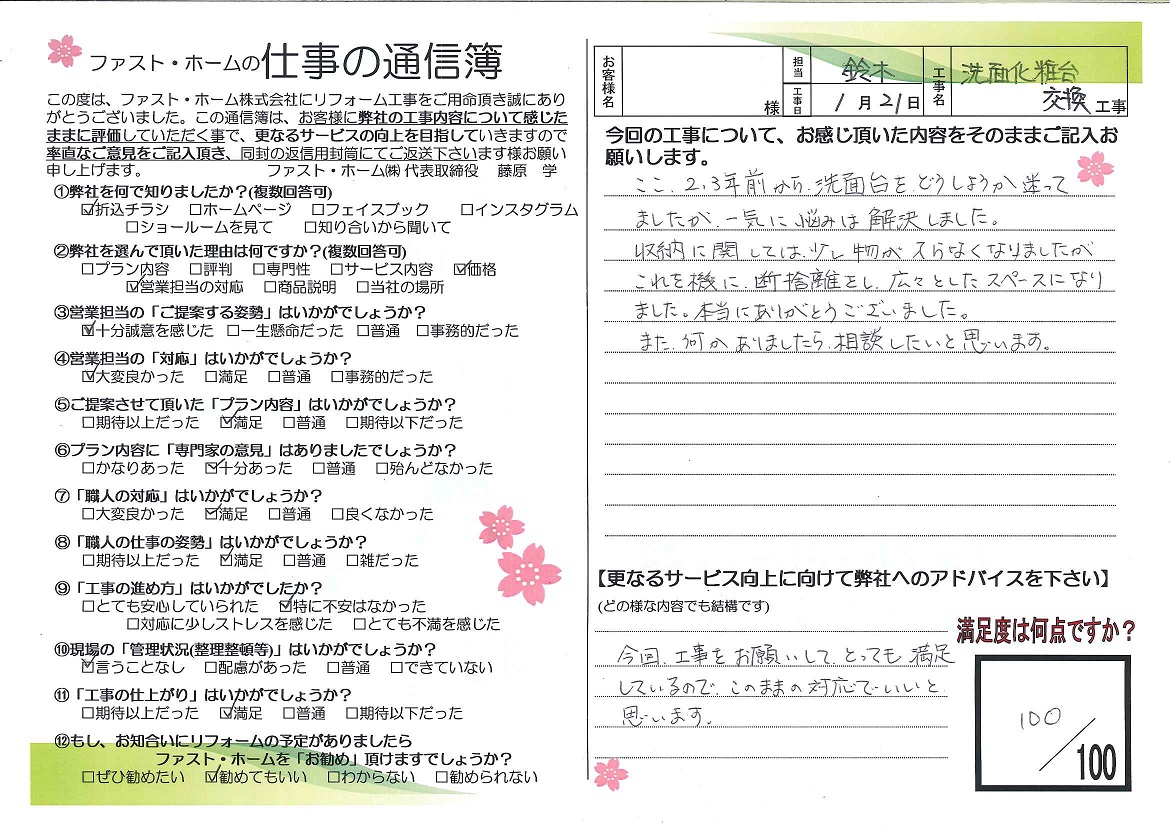 ファスト・ホームの仕事の通信簿
この度は、ファスト・ホーム株式会社にリフォーム工事をご用命頂き誠にあり
がとうございました。この通信簿は、お客様に弊社の工事内容について感じた
ままに評価していただく事で、更なるサービスの向上を目指していきますので
率直なご意見をご記入頂き、同封の返信用封筒にてご返送下さいます様お願い
申し上げます。 ファスト・ホーム㈱ 代表取締役 藤原 学
①弊社を何で知りましたか？(複数回答可)
☑折込チラシ □ホームページ □フェイスブック □インスタグラム
□ショールームを見て □知り合いから聞いて
②弊社を選んで頂いた理由は何ですか？(複数回答可)
□プラン内容 □評判 □専門性 □サービス内容 ☑価格
☑営業担当の対応 □商品説明 □当社の場所
③営業担当の「ご提案する姿勢」はいかがでしょうか？
☑十分誠意を感じた □一生懸命だった □普通 □事務的だった
④営業担当の「対応」はいかがでしょうか？
☑大変良かった □満足 □普通 □事務的だった
⑤ご提案させて頂いた「プラン内容」はいかがでしょうか？
□期待以上だった ☑満足 □普通 □期待以下だった
⑥プラン内容に「専門家の意見」はありましたでしょうか？
□かなりあった ☑十分あった □普通 □殆んどなかった
⑦「職人の対応」はいかがでしょうか？
□大変良かった ☑満足 □普通 □良くなかった
⑧「職人の仕事の姿勢」はいかがでしょうか？
□期待以上だった ☑満足 □普通 □雑だった
⑨「工事の進め方」はいかがでしたか？
□とても安心していられた ☑特に不安はなかった
□対応に少しストレスを感じた □とても不満を感じた
⑩現場の「管理状況(整理整頓等)」はいかがでしょうか？
☑言うことなし □配慮があった □普通 □できていない
⑪「工事の仕上がり」はいかがでしょうか？
□期待以上だった ☑満足 □普通 □期待以下だった
⑫もし、お知合いにリフォームの予定がありましたら
ファスト・ホームを「お勧め」頂けますでしょうか？
□ぜひ勧めたい ☑勧めてもいい □わからない □勧められない
お客様名 様 担当 鈴木 工事日 1月21日 工事名 洗面化粧台
交換工事
今回の工事について、お感じ頂いた内容をそのままご記入お
願いします。
ここ、2,3年前から、洗面台をどうしようか迷って
ましたが、一気に悩みは解決しました。
収納に関しては、少し物が入らなくなりましたが
これを機に、断捨離をし、広々としたスペースになり
ました。本当にありがとうございました。
また、何かありましたら、相談したいと思います。
【更なるサービス向上に向けて弊社へのアドバイスを下さい】
(どの様な内容でも結構です)
今回、工事をお願いして、とっても満足
しているので、このままの対応でいいと
思います。
満足度は何点ですか？
100/100